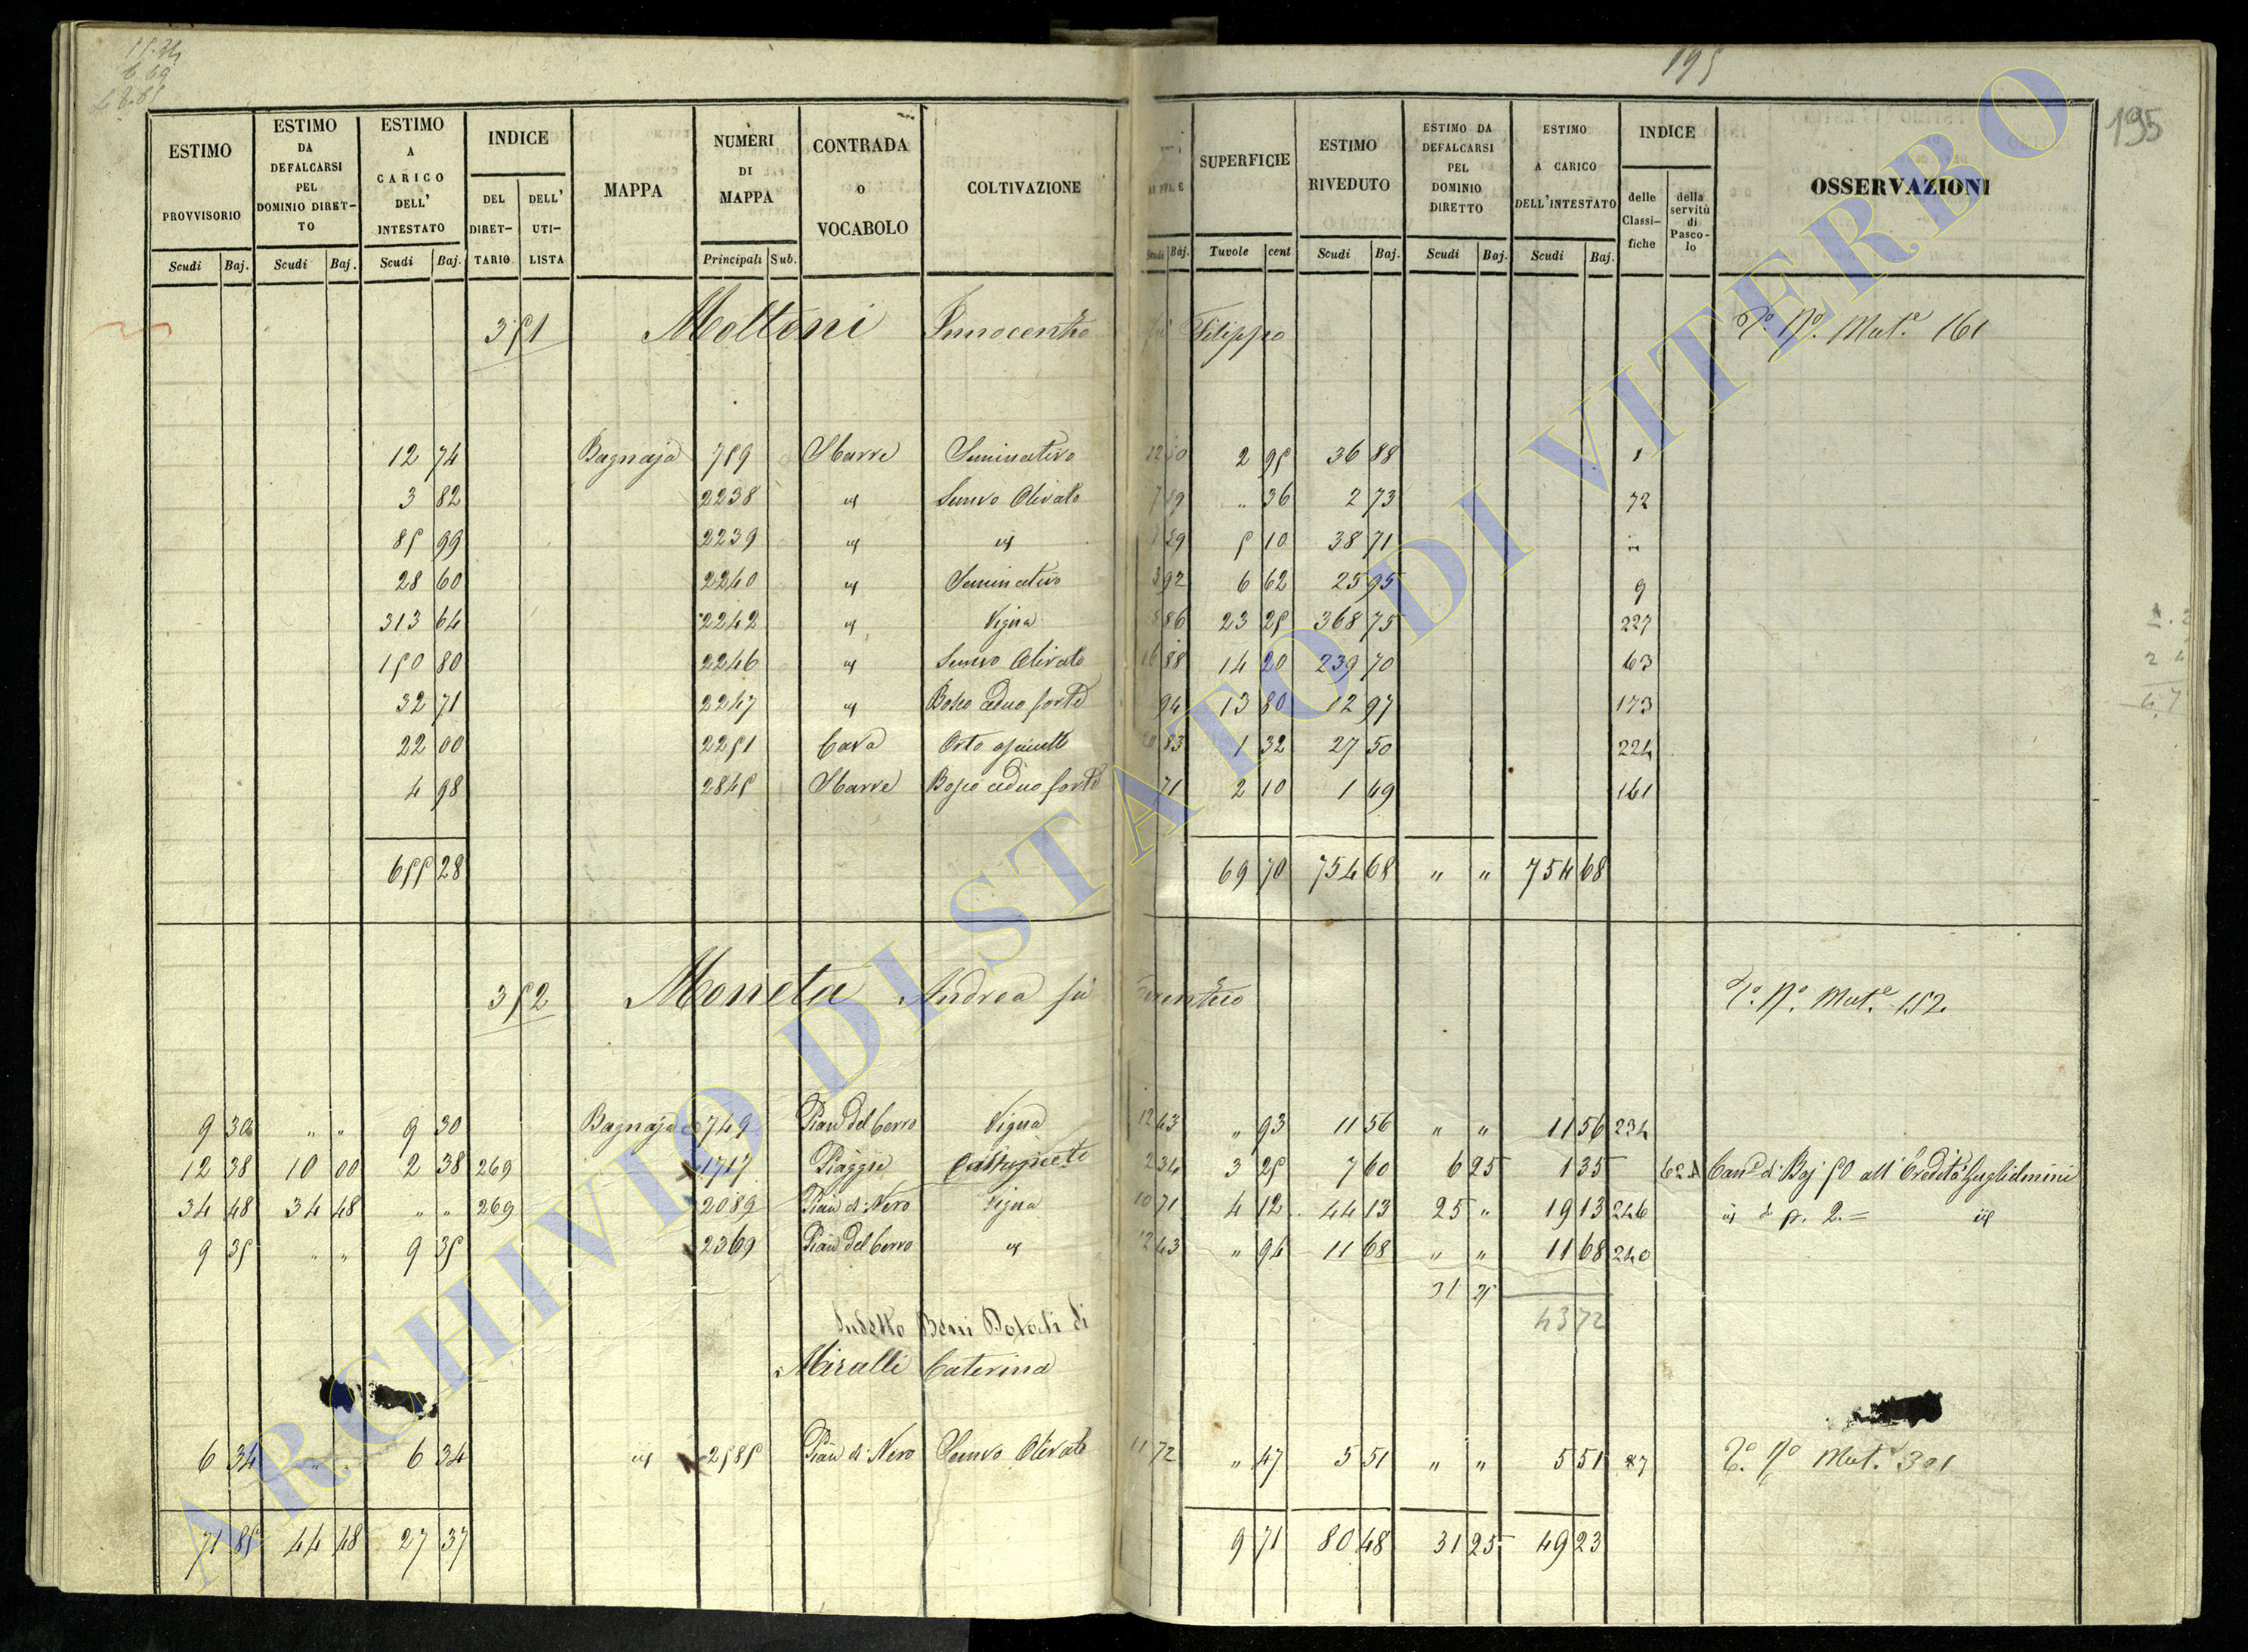 195
195
ESTIMO PROVVISORIO
ESTIMO DA DEFALCARSI PEL DOMINIO DIRET-TO
ESTIMO A CARICO DELL' INTESTATO
INDICE
DEL DIRET-TARIO
DELL' UTI-LISTA
MAPPA
NUMERI DI MAPPA
CONTRADA o VOCABOLO
COLTIVAZIONE
SUPERFICIE
ESTIMO RIVEDUTO
ESTIMO DA DEFALCARSI PEL DOMINIO DIRETTO
ESTIMO A CARICO DELL'INTESTATO
INDICE
delle Classi-fiche
della servitù di Pasco-lo
OSSERVAZIONI
Scudi Baj. Scudi Baj. Scudi Baj. Principali Sub. Scudi Baj. Tavole cent Scudi Baj. Scudi Baj. Scudi Baj.
351 Molteni Innocenzo fu Filippo Mut.e 161
12 74 Bagnaja 759 Sbarre Seminativo 2 95 36 88 1
3 82 2238 " Semvo Olivato " 36 2 73 72
85 99 2239 " " 5 10 38 71 "
28 60 2240 " Seminativo 3 92 6 62 25 95 9
313 64 2242 " Vigna 86 23 25 368 75 227
150 80 2246 " Semvo Olivato 16 88 14 20 239 70 63
32 71 2247 " Bosco ceduo forte 94 13 80 12 97 173
22 00 2251 Cava Orto asciutto 20 83 1 32 27 50 224
4 98 2845 Sbarre Bosco ceduo forte 71 2 10 1 49 161
655 28 69 70 754 68 " " 754 68
352 Moneta Andrea fu Mut.e 152
9 30 " " 9 30 Bagnaja 749 Pian del Cerro Vigna 12 43 " 93 11 56 " " 11 56 234
12 38 10 00 2 38 269 1717 Piaggie Castagneto 2 34 3 25 7 60 6 25 1 35 Can.e di Baj 50 all' Eredità Guglielmini
34 48 34 48 " " 269 2089 Pian di Nero Vigna 10 71 4 12 44 13 25 " 19 13 246
9 35 " " 9 35 2369 Pian del Cerro " 12 43 " 94 11 68 " " 11 68 240
31 25
43 72
Sudetto Beni Dotali di
Miralli Caterina
6 34 6 34 2585 Pian di Nero Semvo Olivato 11 72 " 47 5 51 " " 5 51 Mut.e 301
71 85 44 48 27 37 9 71 80 48 31 25 49 23
ARCHIVIO DI STATO DI VITERBO